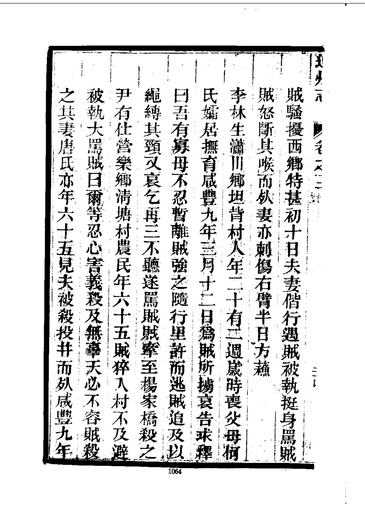 賊騷擾西鄉特甚初十日夫妻偕行遇賊被執挺身罵賊
賊怒斷其喉而死妻亦刺傷右臂半日方蘇
李林生瀟川鄉坦背村人年二十有二週歲時喪父母柯
氏孀居撫育咸豐九年三月十二日為賊所擄哀告求釋
曰吾有寡母不忍暫離賊強之隨行里許而逃賊追及以
繩縛其頸又哀乞再三不聽遂罵賊賊牽至楊家橋殺之
尹有仕營樂鄉清塘村農民年六十五賊猝入村不及避
被執大罵賊曰爾等忍心害義殺及無辜天必不容賊殺
之其妻唐氏亦年六十五見夫被殺投井而死咸豐九年
1064